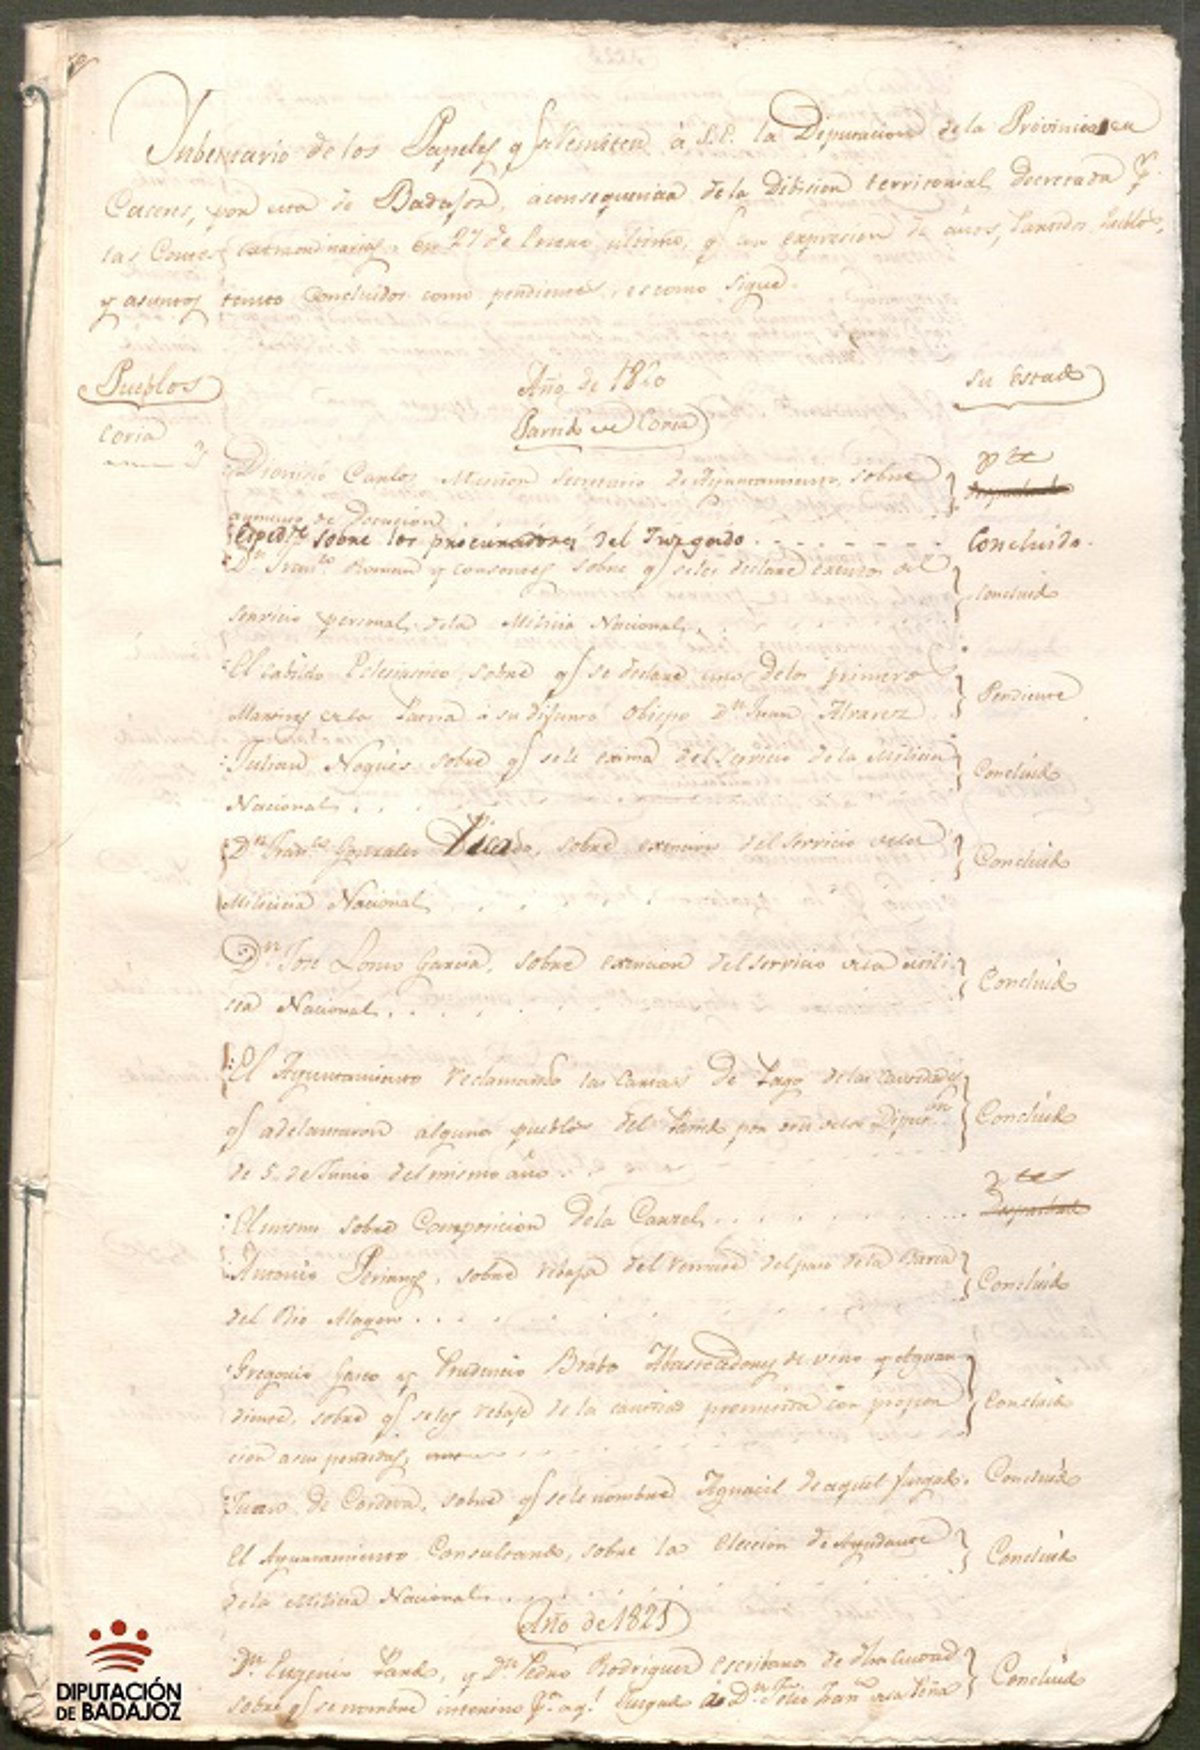 Inbentario de los Papeles q se Remiten á S.E. la Diputacion de la Provincia de
Caceres, por esta de Badajoz, á consequencia de la Dibision territorial decretada p.r
las Cortes extraordinarias en 27 de Enero ultimo, q con expresion de años, Partidos Pueblos,
y asuntos tanto Concluidos como pendientes, es como sigue.
Pueblos
Año de 1820
su Estado
Coria
Partido de Coria
Dionisio Carlos secretario de Ayuntamiento, sobre
p.te
aumento de Dotacion
Exped.te sobre los procuradores del Juzgado
Concluido.
D.n Fran.co Roman y consortes sobre q se les declare exentos del
Concluido
servicio personal de la Milicia Nacional
El Cabildo Eclesiastico, sobre q se declare uno de los primeros
Pendiente
Martires de la Patria á su difunto Obispo D.n Juan Alvarez
Julian Nogués sobre q se le exima del servicio de la Milicia
Concluido
Nacional
D.n Fran.co Gonzales Picado, sobre exencion del servicio de la
Concluido
Milicia Nacional
D.n José Lomo Garcia, sobre exencion del servicio de la Mili-
Concluido
cia Nacional
El Ayuntamiento reclamando las Cartas de Pago de las cantidades
q adelantaron algunos pueblos del Partido por orn de la Diput.on
Concluido
de 5 de Junio del mismo año
p.te
El mismo sobre Composicion de la Carzel
Despachado
Antonio Perianes, sobre rebaja del remate del paso de la Barca
Concluido
del Rio Alagon
Gregorio Gasco y Prudencio Brabo Abastecedores de vino y Aguar-
diente, sobre q se les rebaje de la cantidad prometida con propor-
Concluido
cion a sus perdidas
Juan de Cordova, sobre q se le nombre Aguacil de aquel Juzgado.
Concluido
El Ayuntamiento Consultando, sobre la eleccion de Ayudante
Concluido
de la Milicia Nacional
Año de 1821
D.n Eugenio Pardo, y D.n Pedro Rodriguez escribanos de dha Ciudad
Concluido
sobre q se nombre interino p.a aq.l Juzgado á D.n Felix Fran.co de la Peña
DIPUTACIÓN
DE BADAJOZ